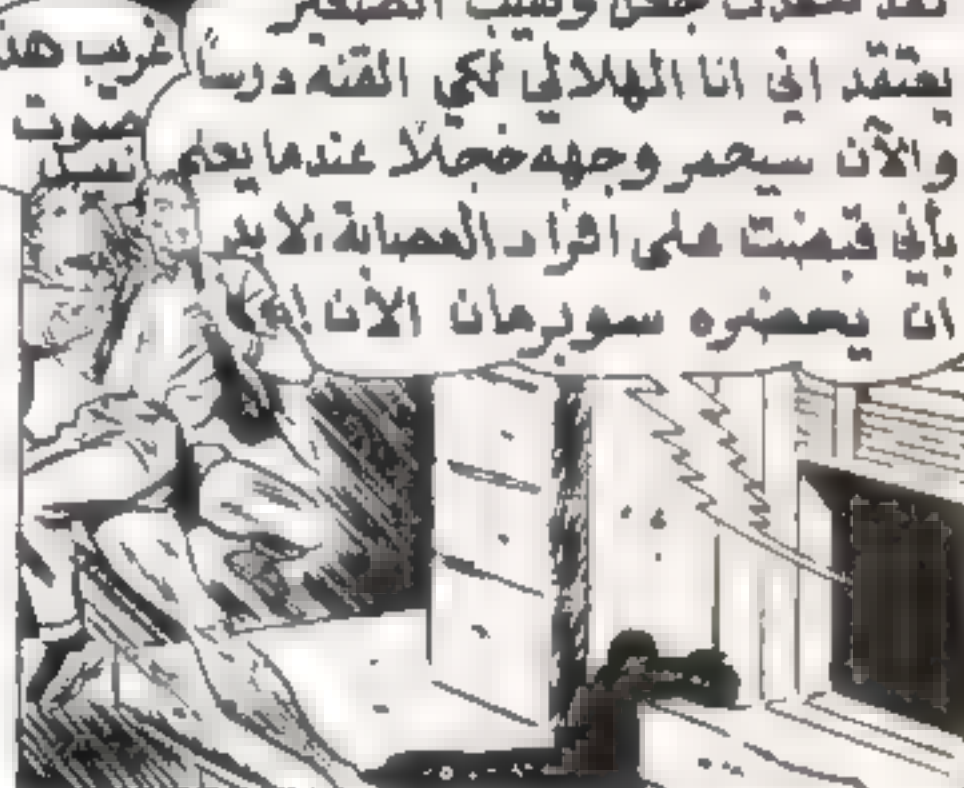 يعتقد اني انا الهلالي لكي القنه درساً
والآن سيحمر وجهه خجلاً عندما يعلم
بأني قبضت على افراد العصابة، لا بد
ان يحضره سوبرمان الآن!
غريب هذ
صوت